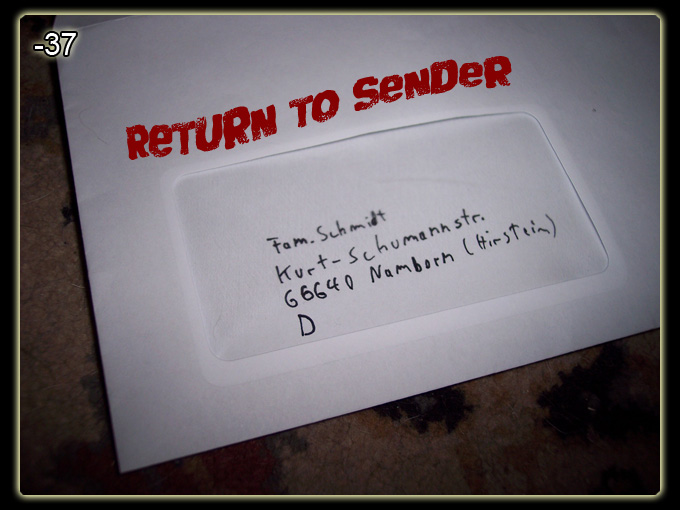 -37
RETURN TO SENDER
Fam. Schmidt
Kurt-Schumannstr.
66640 Namborn (Hirstein)
D